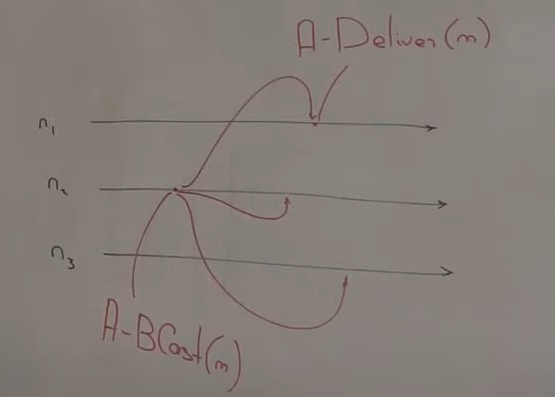 A-Deliver(m)
n₁
n₂
n₃
A-BCast(m)